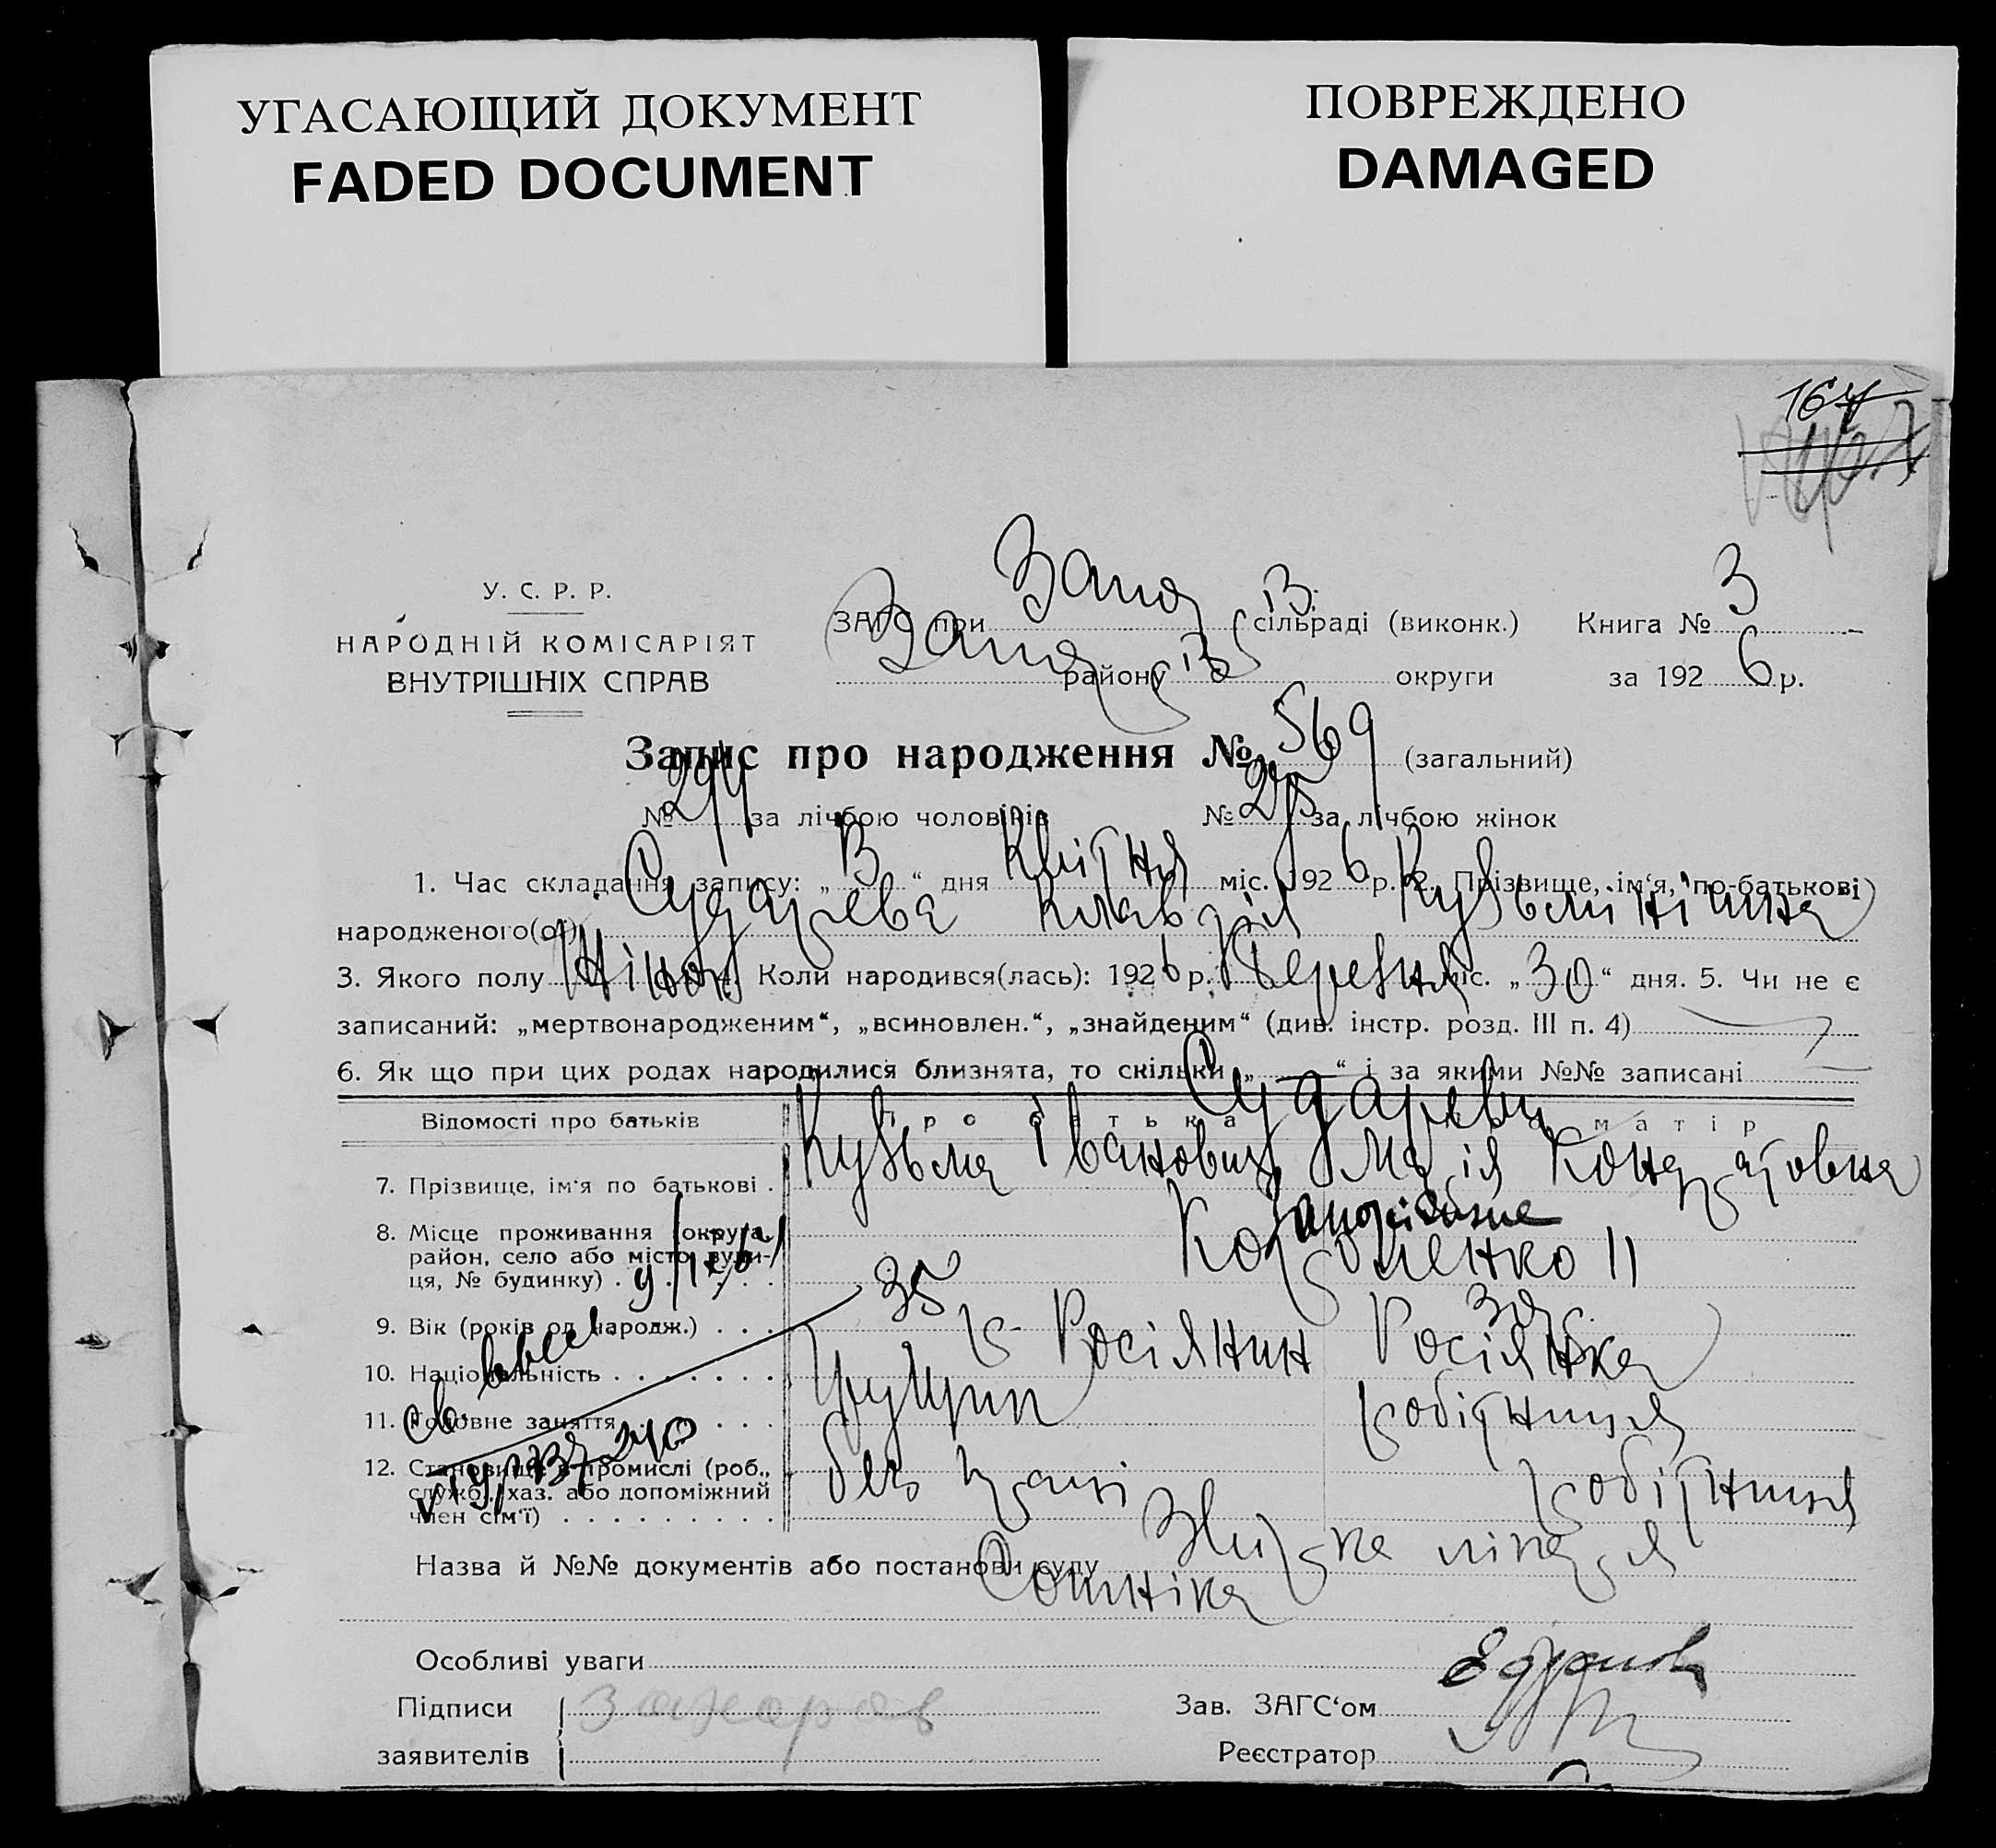 УГАСАЮЩИЙ ДОКУМЕНТ
FADED DOCUMENT
ПОВРЕЖДЕНО
DAMAGED
167
У. С. Р. Р.
НАРОДНІЙ КОМІСАРІЯТ
ВНУТРІШНІХ СПРАВ
ЗАГС при Запор із. сільраді (виконк.) Книга № 3
Запор району із округи за 1926 р.
Запис про народження № 569 (загальний)
№ 294 за лічбою чоловіків № 275 за лічбою жінок
1. Час складання запису: „ “ дня Квітня міс. 1926 р. 2. Прізвище, ім‘я, по-батькові
народженого(ої) Сударева Клавдія Кузьмінішна
3. Якого полу Жіноч 4. Коли народився(лась): 1926 р. Березня міс. „30“ дня. 5. Чи не є
записаний: „мертвонародженим“, „всиновлен.“, „знайденим“ (див. інстр. розд. III п. 4)
6. Як що при цих родах народилися близнята, то скільки „—“ і за якими №№ записані
Відомості про батьків Про батька Про матір
Судареви
7. Прізвище, ім‘я по батькові . Кузьма Іванович Марія Кондратовна
8. Місце проживання (округа,
район, село або місто, вули-
ця, № будинку) . . . . .
11
9. Вік (років од народж.) . . . 35 р 30 р
10. Національність . . . . . . . Росіянин Росіянка
11. Головне заняття . . . . . . . робітниця
12. Становище в промислі (роб.,
служб., хаз. або допоміжний
член сім‘ї) . . . . . . . . . без праці робітниця
Назва й №№ документів або постанови суду Звідка лікаря
Сотніка
Особливі уваги
Підписи
заявителів
Захаров
Зав. ЗАГС‘ом
Реєстратор